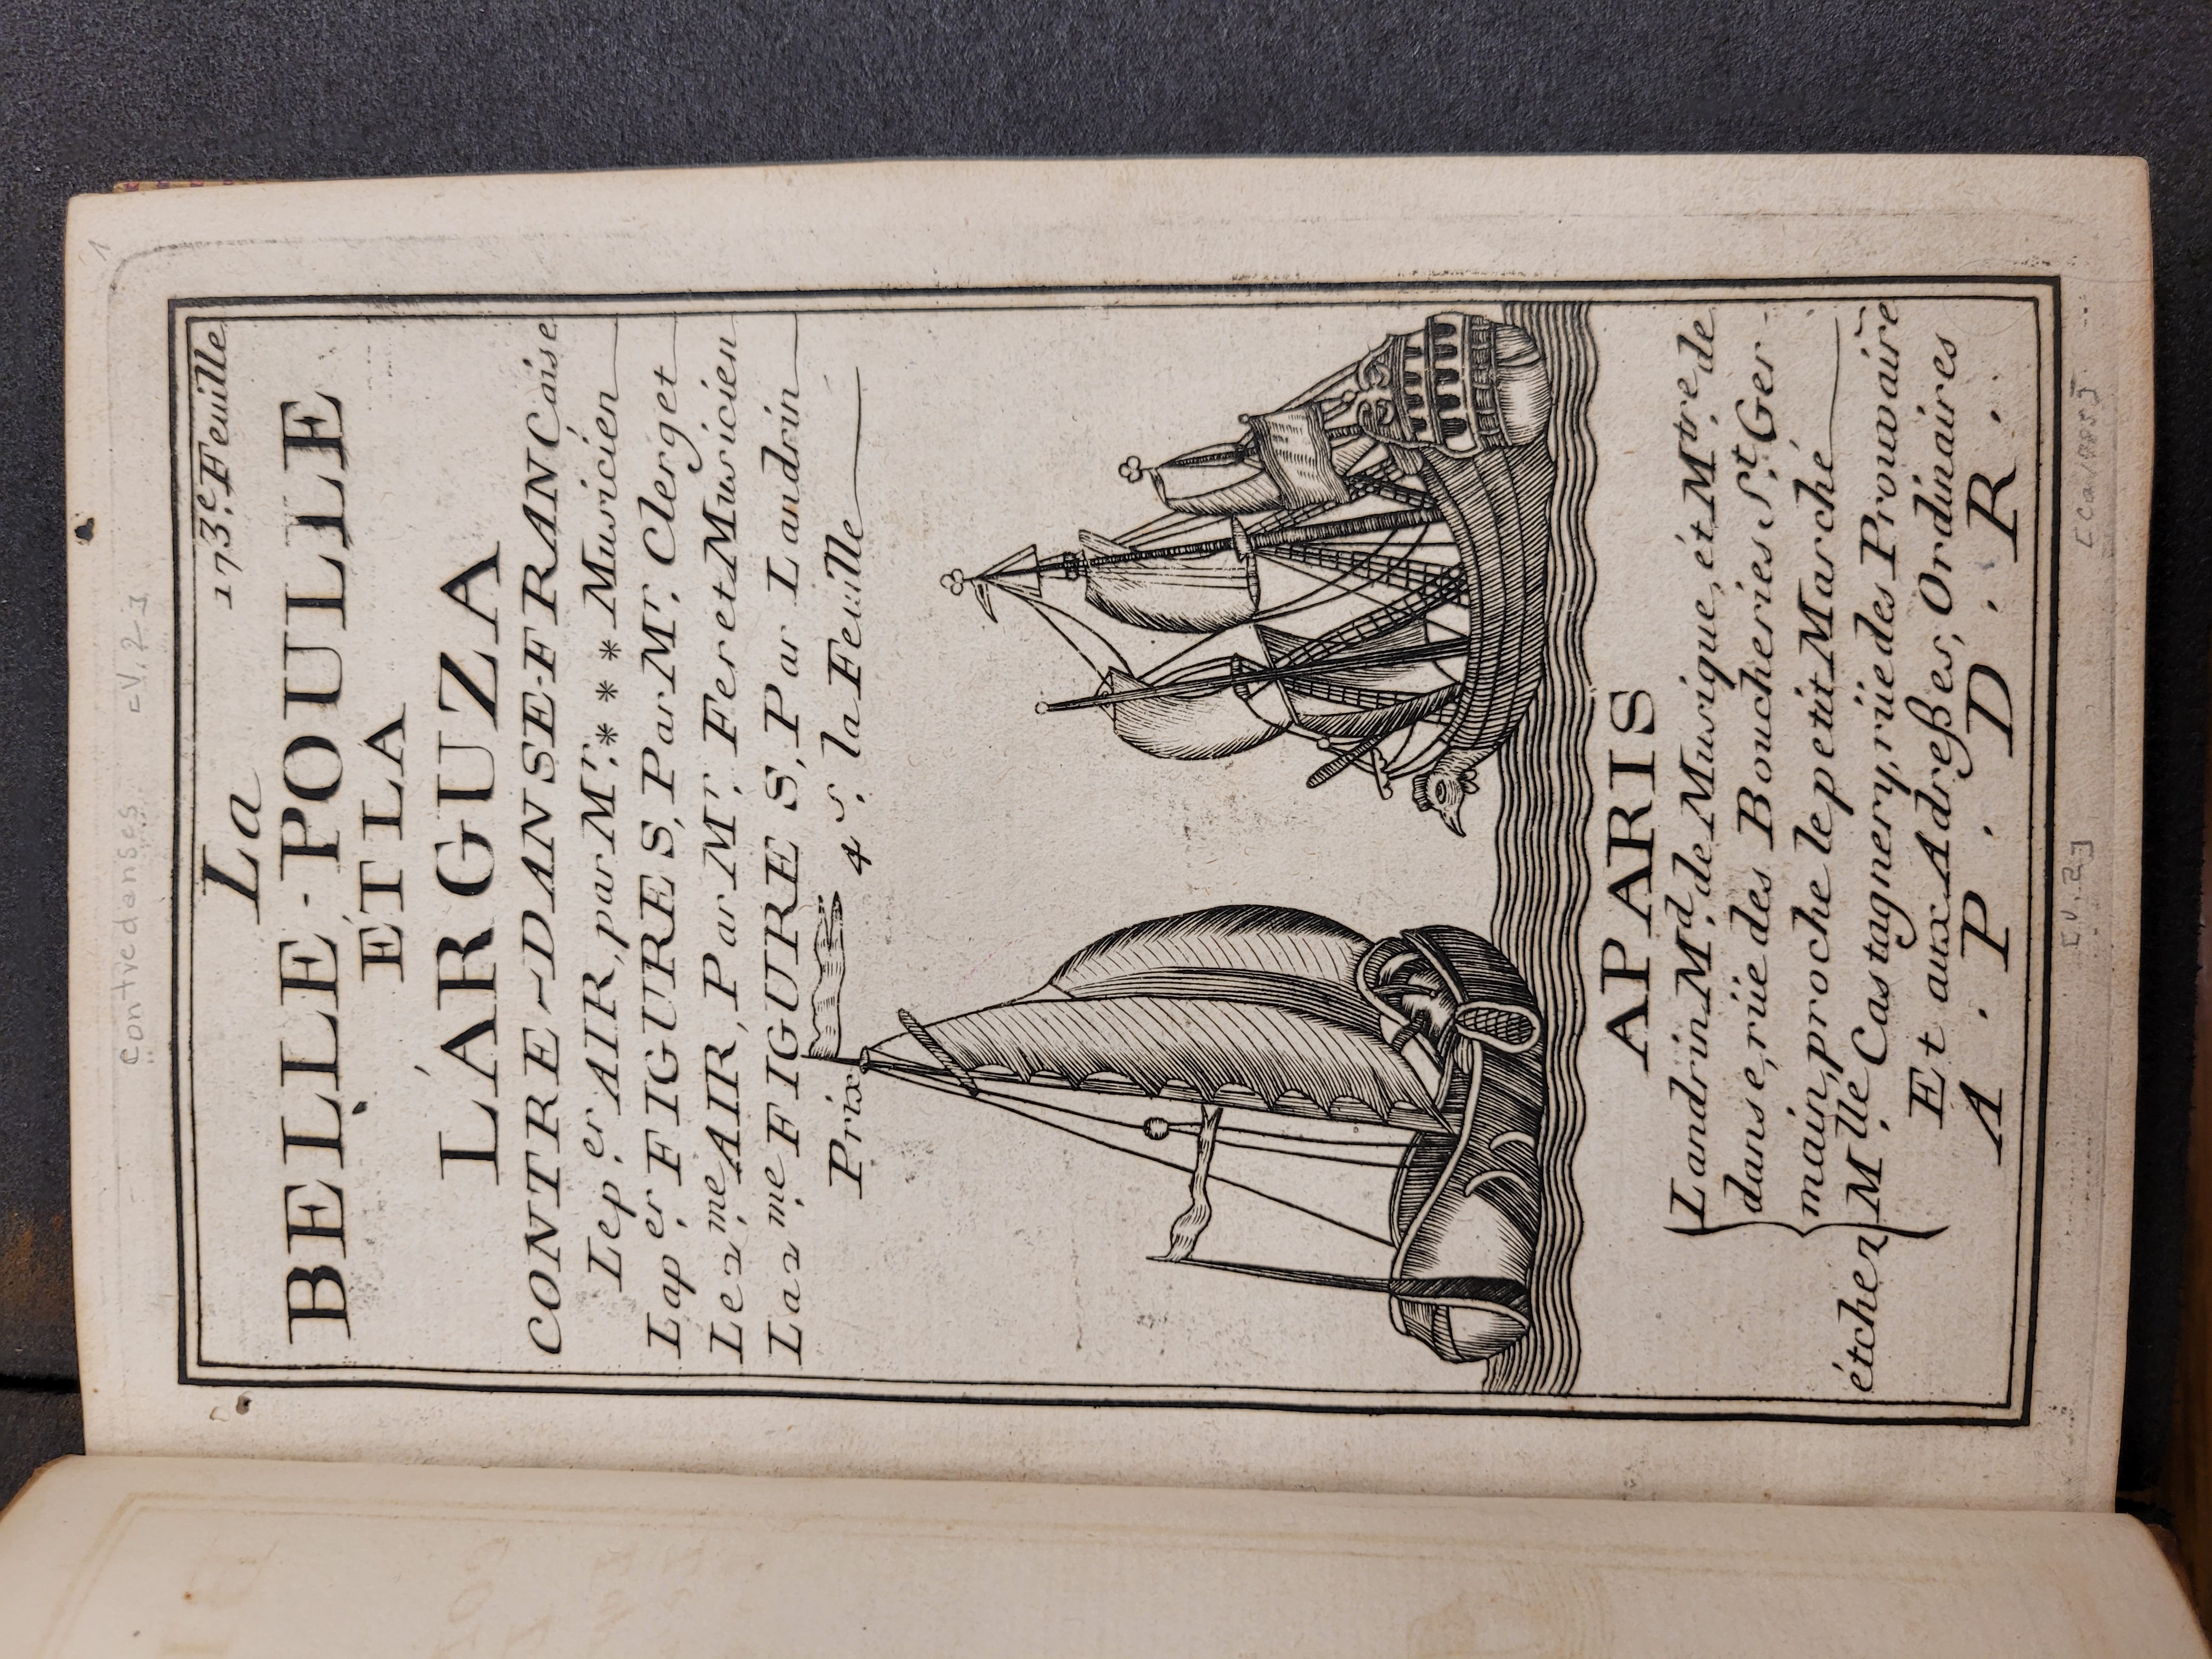 Contredanses. [V. 2]
1
173.e Feuille
La
BELLE-POULLE
ÉT LA
L'ARGUZA
CONTRE-DANSE-FRANCaise
Le p.er AIR, par M.r. * * * Musicién
La p.er FIGURES, Par M.r. Clerget
Le 2.me AIR, Par M.r Feret Musicien
La 2.me FIGURES, Par Landrin
Prix 4.s. la Feuille
A PARIS
Landrin M.d. de Musique, ét M.tre de
danse, rüe des Boucheries S.t Ger-
main, proche le petit Marché
étchez M.lle Castagnery, rüe des Prouvaire
Et aux Adreßes, Ordinaires
A . P . D . R .
[V. 2] [Ca 1785]